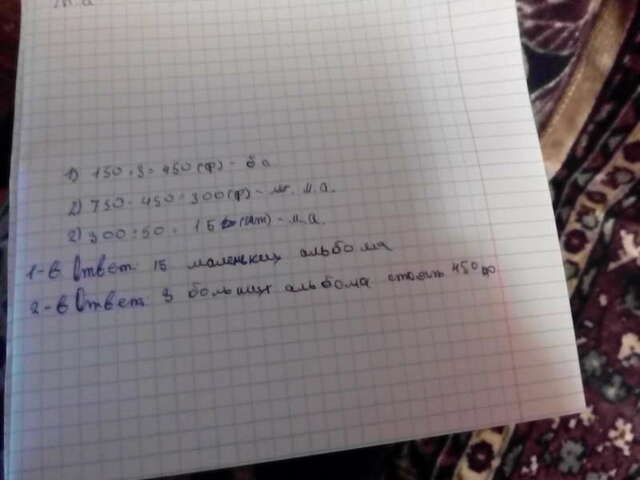 м.а
1) 150 · 3 = 450 (ф) - б а
2) 750 - 450 = 300 (ф) - м.а.
2) 300 : 50 = 15 (шт) - м.а.
1-в Ответ: 15 маленьких альбома
2-в Ответ 3 больших альбома стоять 450